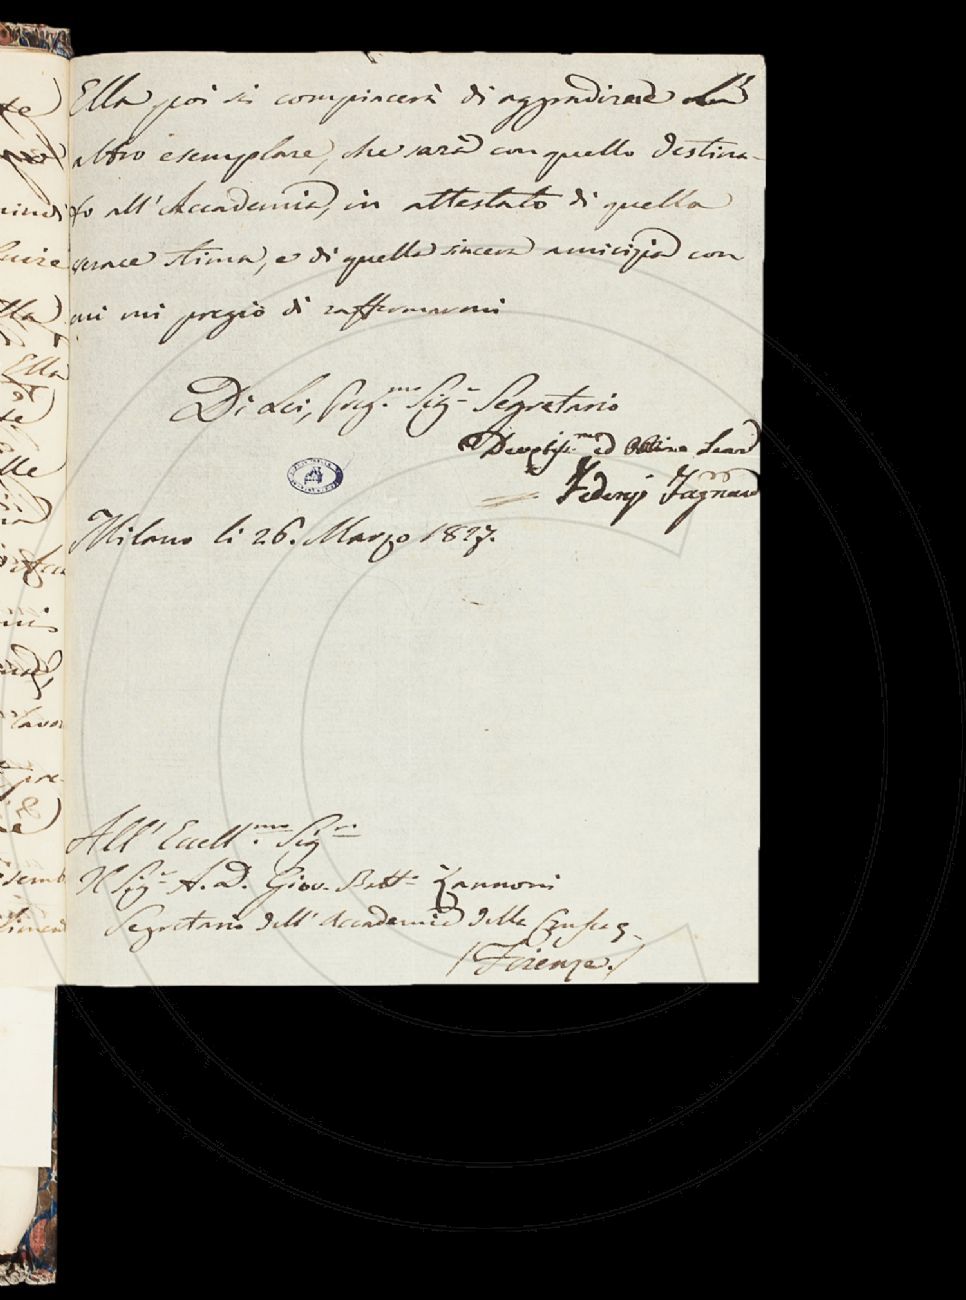 Ella poi si compiacerà di aggradirne un
altro esemplare, che sarà con quello destina-
to all'Accademia, in attestato di quella
verace stima, e di quella sincera amicizia con
cui mi pregio di raffermarmi
Di Lei, Preg.mo Sig.r Segretario
Devotiss.mo ed
Federigo Fagnani
Milano li 26. Marzo 1827.
All' Eccell.mo Sig.re
Il Sig.r A. D. Giov. Batt.a Zannoni
Segretario dell' Accademia della Crusca
Firenze.